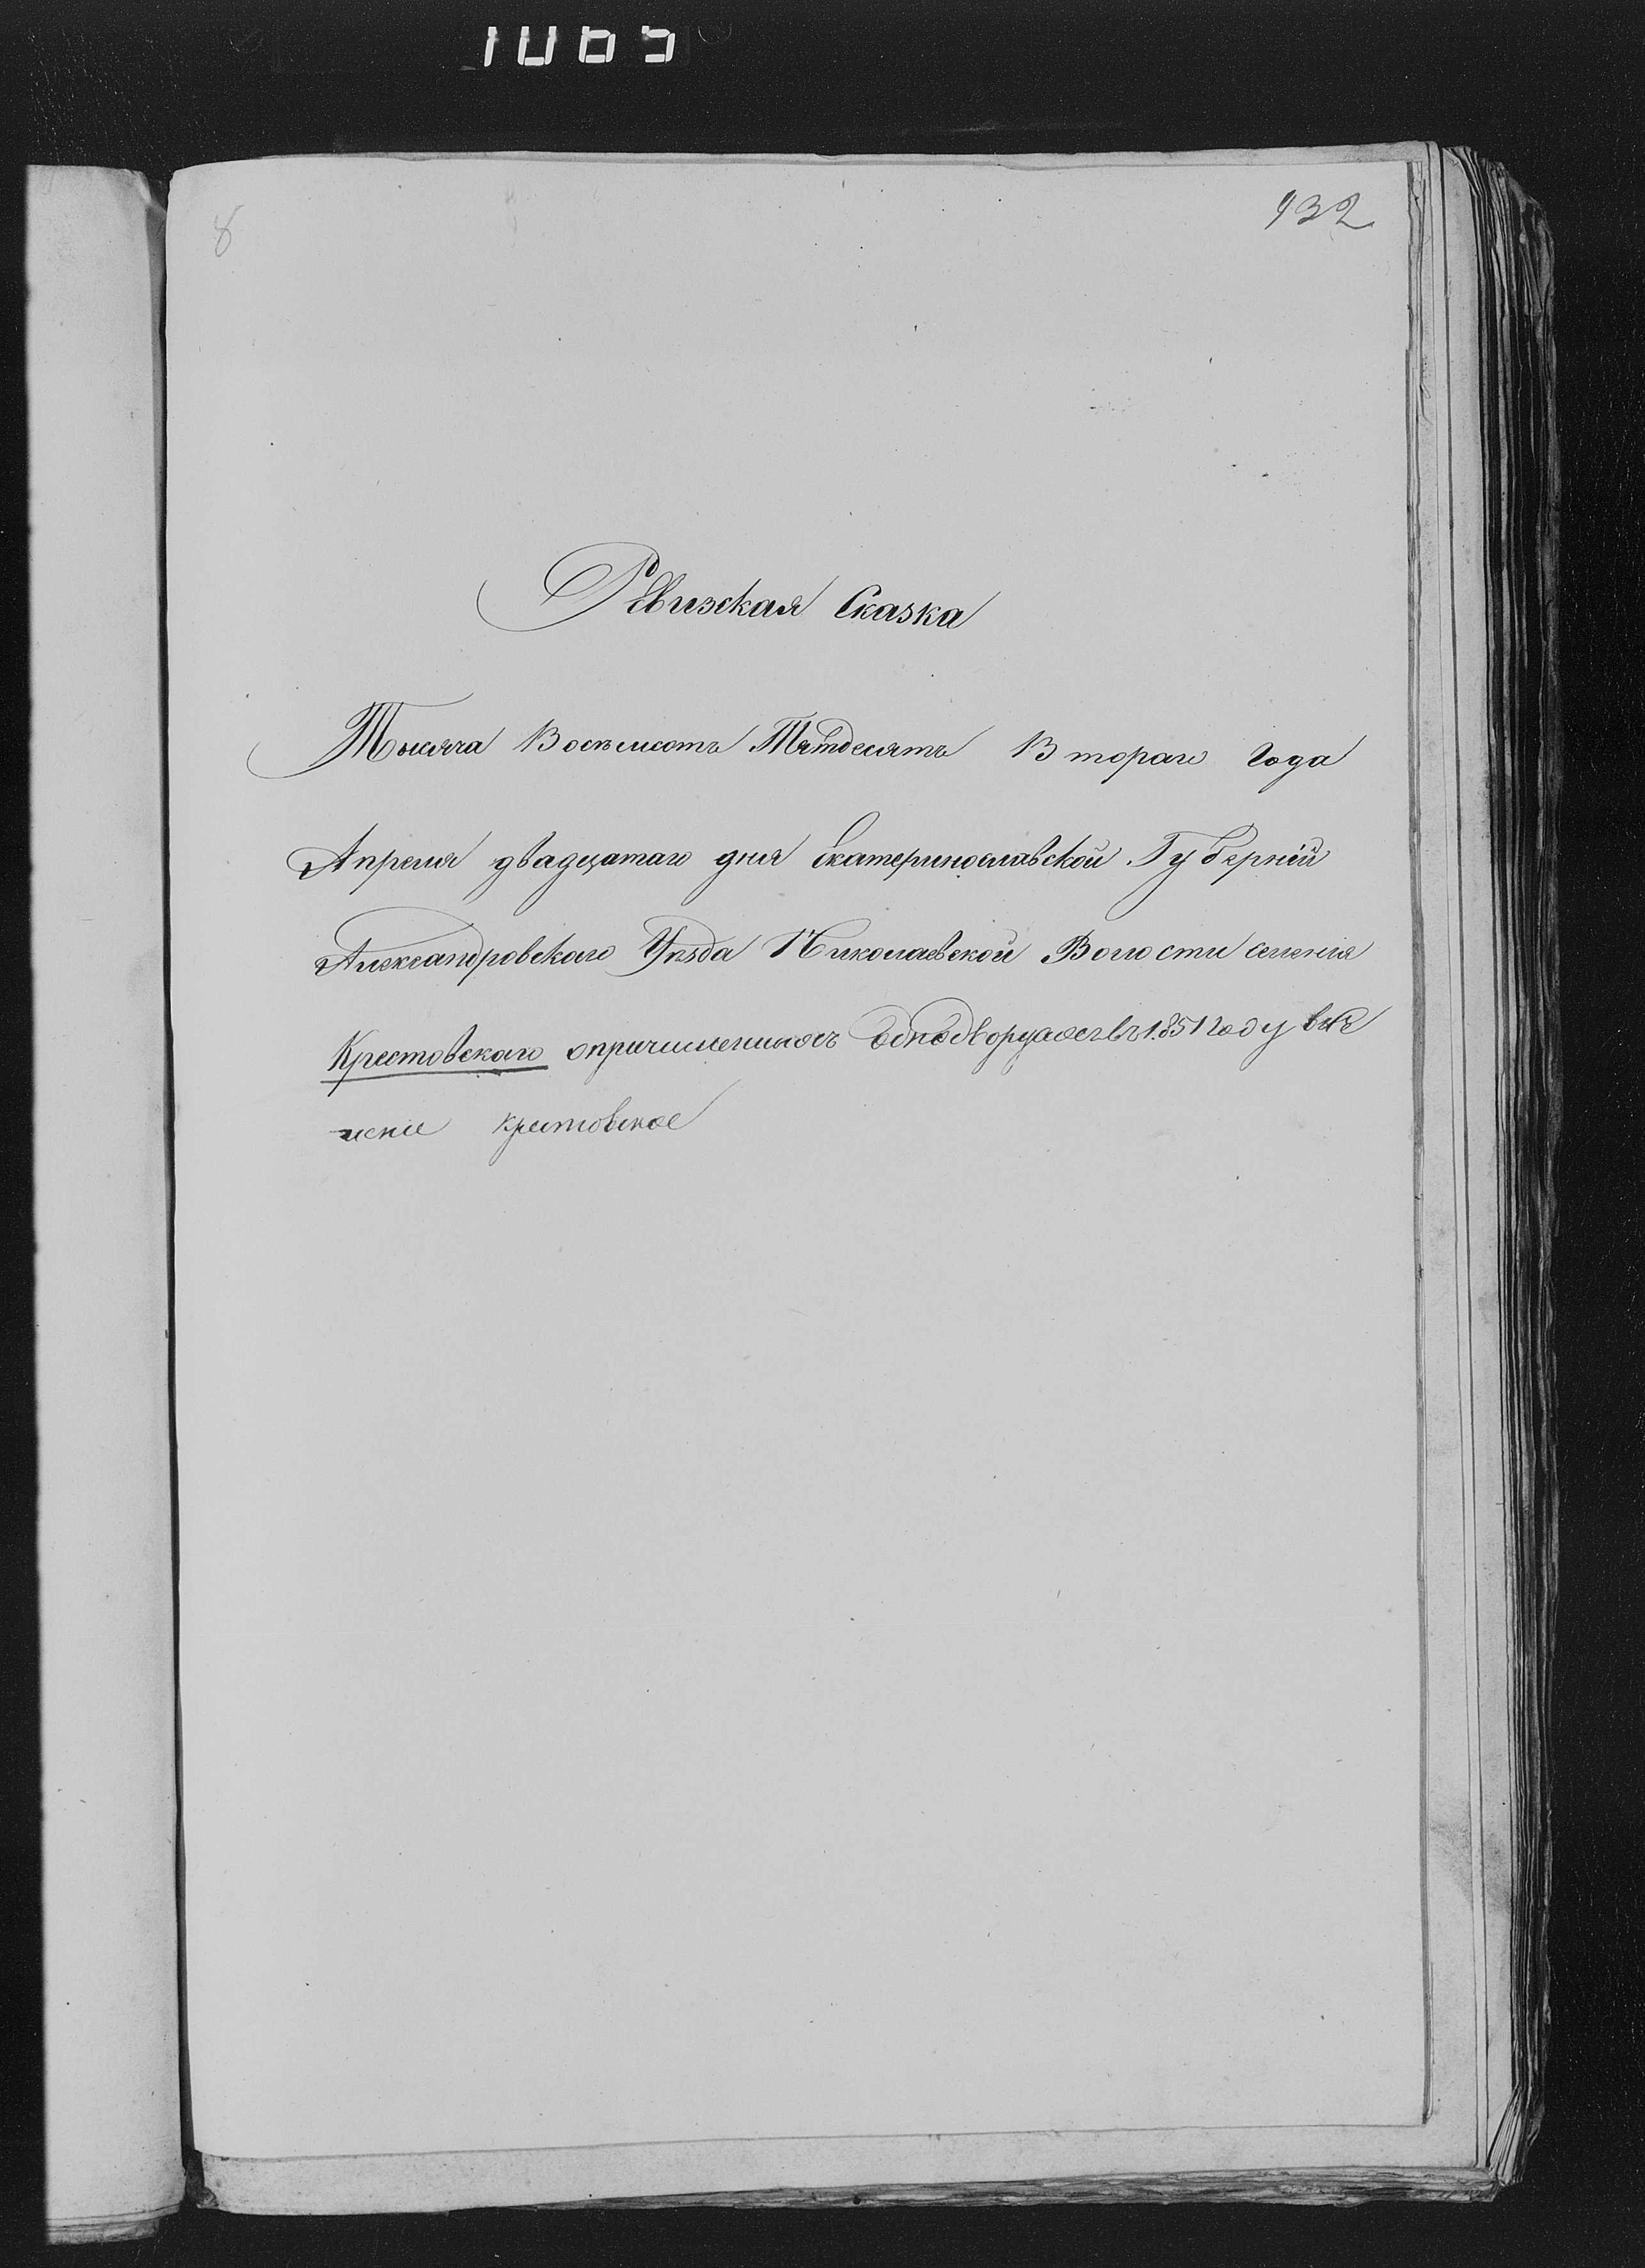 1065
8
932
Ревизская Сказка
Тысяча Восемсотъ Пятдесятъ Втораго Года
Апреля двадцатаго дня Екатеринославской Губерніи
Александровскаго Уезда Николаевской Волости селенія
Крестовскаго опричисленныхъ однодворцахъ въ 1851 году
крестовское